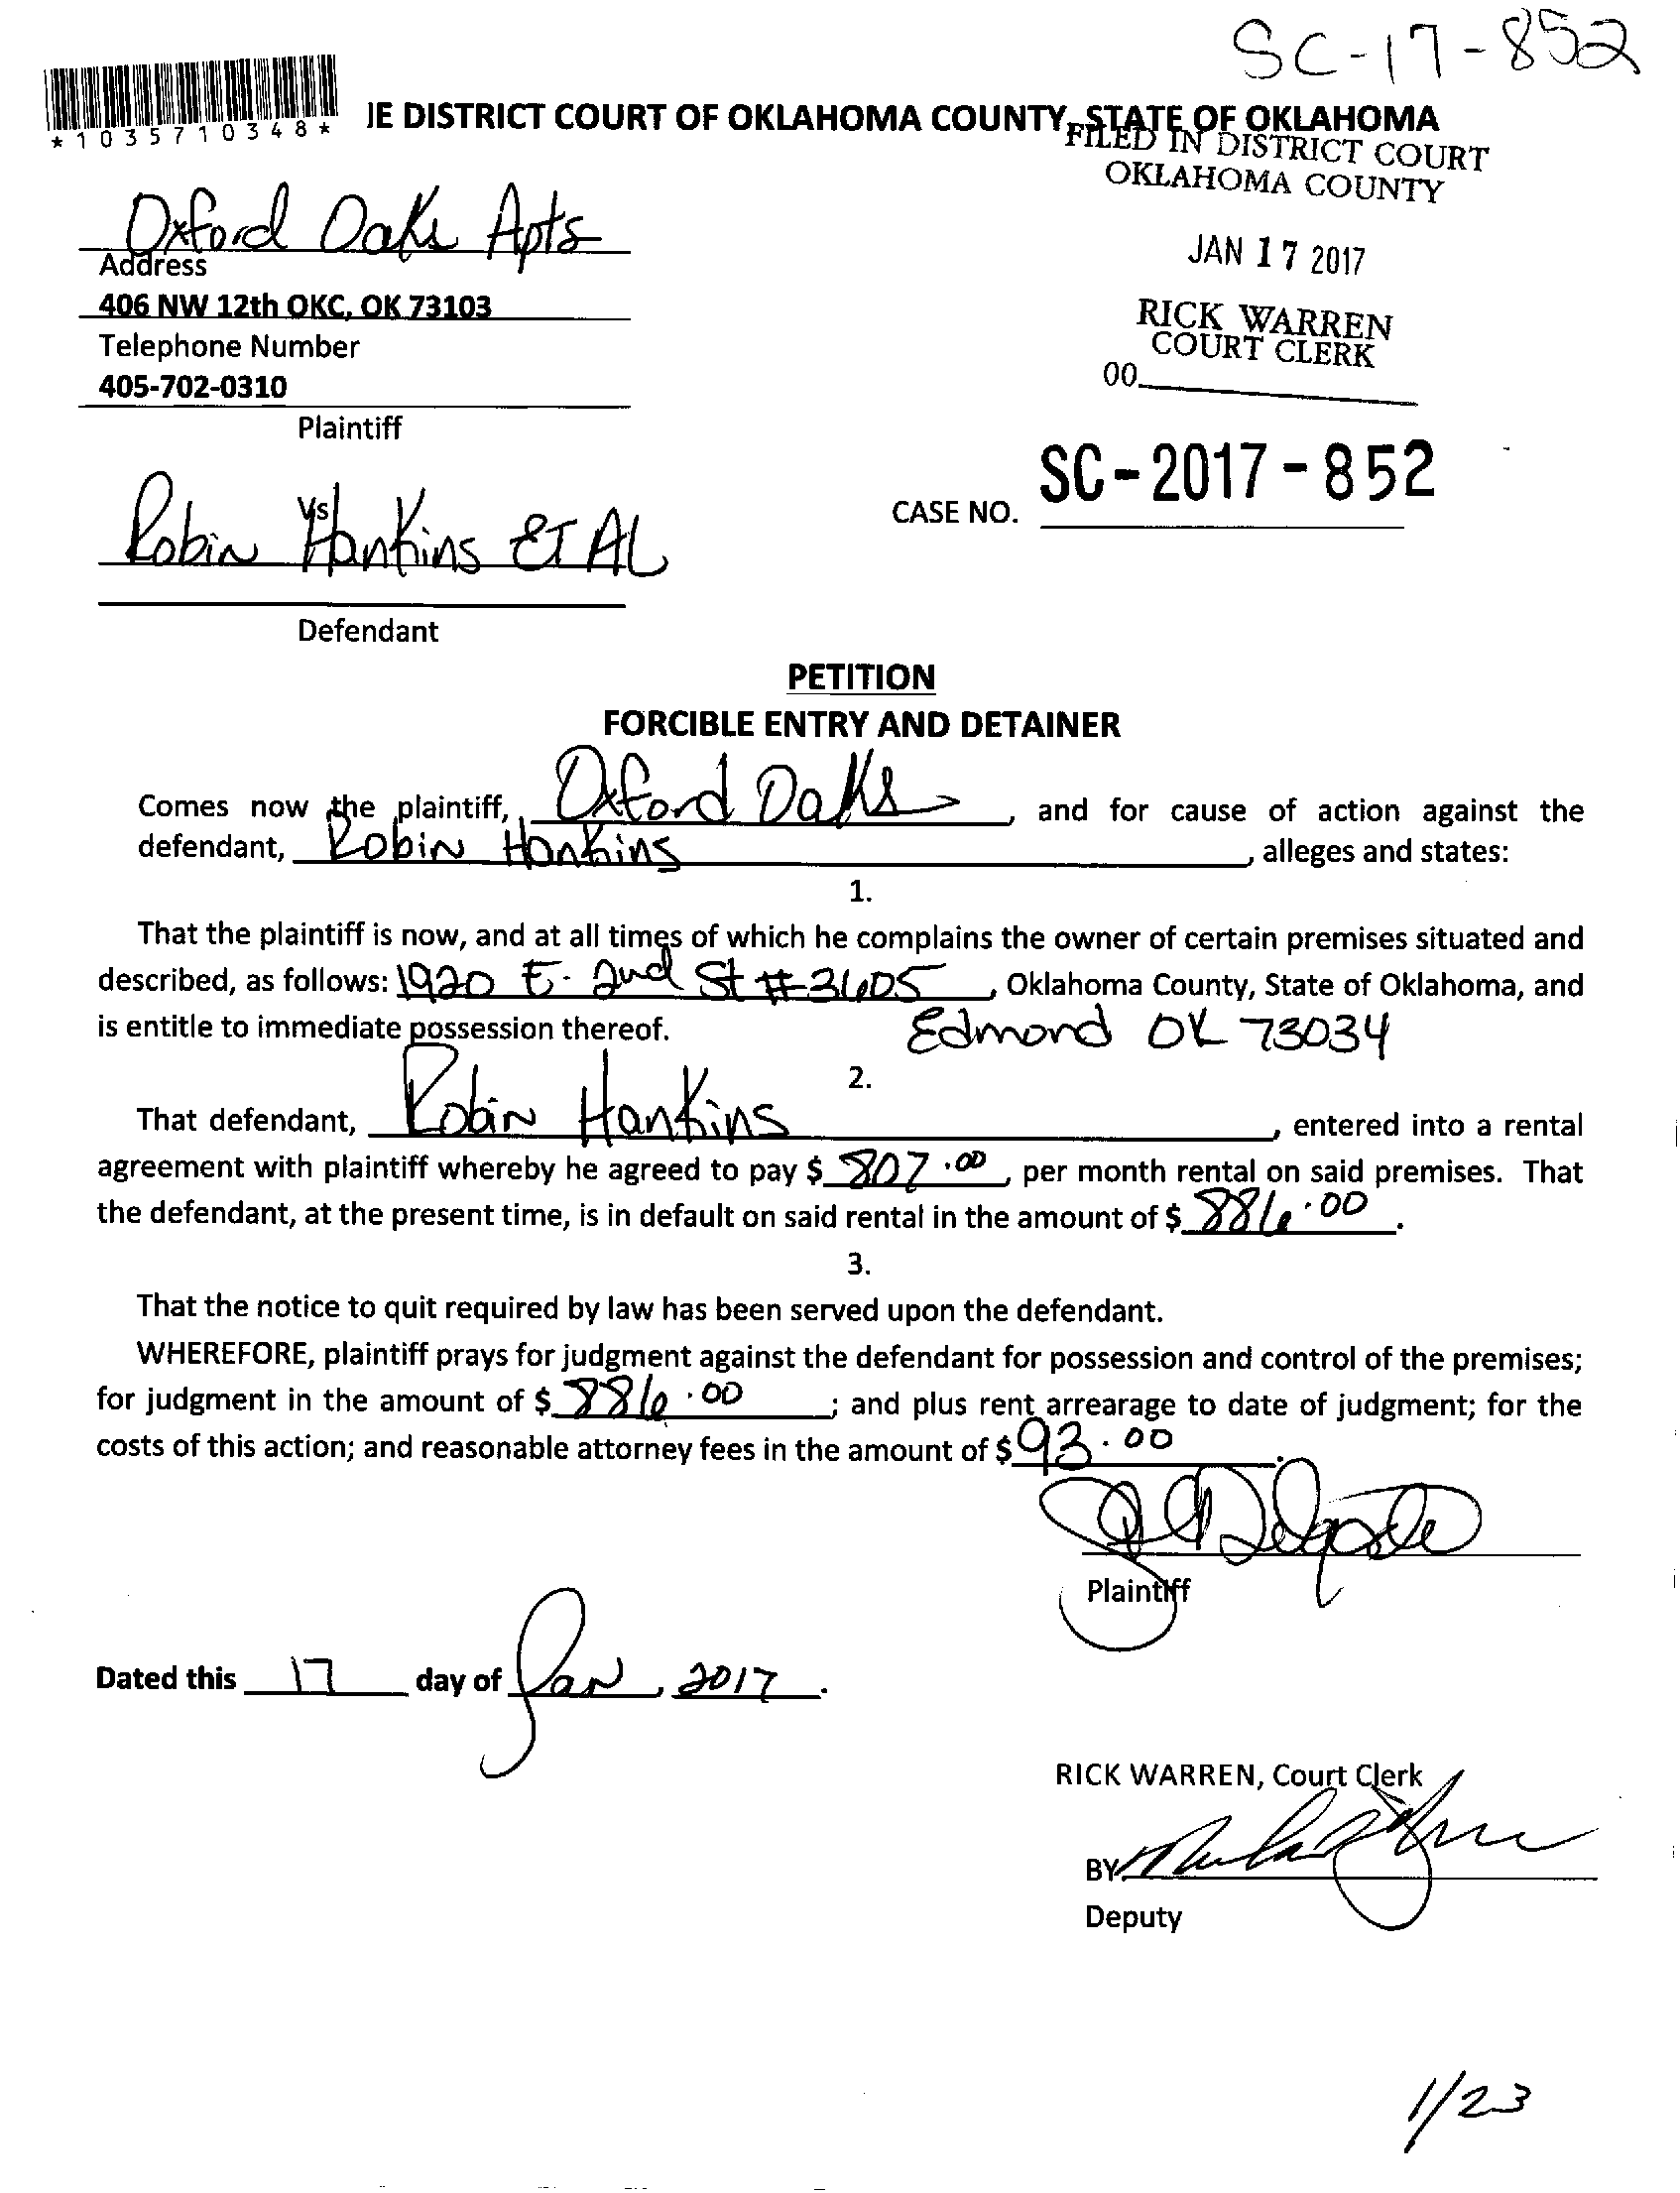 SC-17-852
*1035710348*
IE DISTRICT COURT OF OKLAHOMA COUNTY, STATE OF OKLAHOMA
FILED IN DISTRICT COURT
OKLAHOMA COUNTY
JAN 17 2017
RICK WARREN
COURT CLERK
00
Oxford Oaks Apts
Address
406 NW 12th OKC, OK 73103
Telephone Number
405-702-0310
Plaintiff
Vs
Robin Hankins ET AL
CASE NO. SC-2017-852
Defendant
PETITION
FORCIBLE ENTRY AND DETAINER
Comes now the plaintiff, Oxford Oaks, and for cause of action against the
defendant, Robin Hankins, alleges and states:
1.
That the plaintiff is now, and at all times of which he complains the owner of certain premises situated and
described, as follows: 1920 E. 2nd St #3605, Oklahoma County, State of Oklahoma, and
is entitle to immediate possession thereof. Edmond OK 73034
2.
That defendant, Robin Hankins, entered into a rental
agreement with plaintiff whereby he agreed to pay $ 807.00, per month rental on said premises. That
the defendant, at the present time, is in default on said rental in the amount of $ 886.00.
3.
That the notice to quit required by law has been served upon the defendant.
WHEREFORE, plaintiff prays for judgment against the defendant for possession and control of the premises;
for judgment in the amount of $ 886.00; and plus rent arrearage to date of judgment; for the
costs of this action; and reasonable attorney fees in the amount of $ 93.00.
Plaintiff
Dated this 17 day of Jan, 2017.
RICK WARREN, Court Clerk
BY
Deputy
1/23